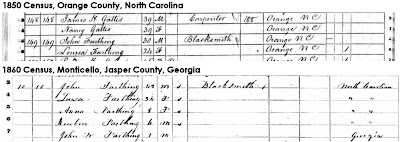 1850 Census, Orange County, North Carolina
148 148 James H Gattis 39 M Carpenter 185 Orange NC
Nancy Gattis 39 F Orange NC
149 149 John Farthing 30 M Blacksmith Orange NC
Louisa Farthing 24 F Orange NC
1860 Census, Monticello, Jasper County, Georgia
10 10 John Farthing m Blacksmith North Carolina
Farthing 34 F " "
Anna Farthing 8 F " "
Farthing 6 m " "
John W Farthing 1 m Georgia